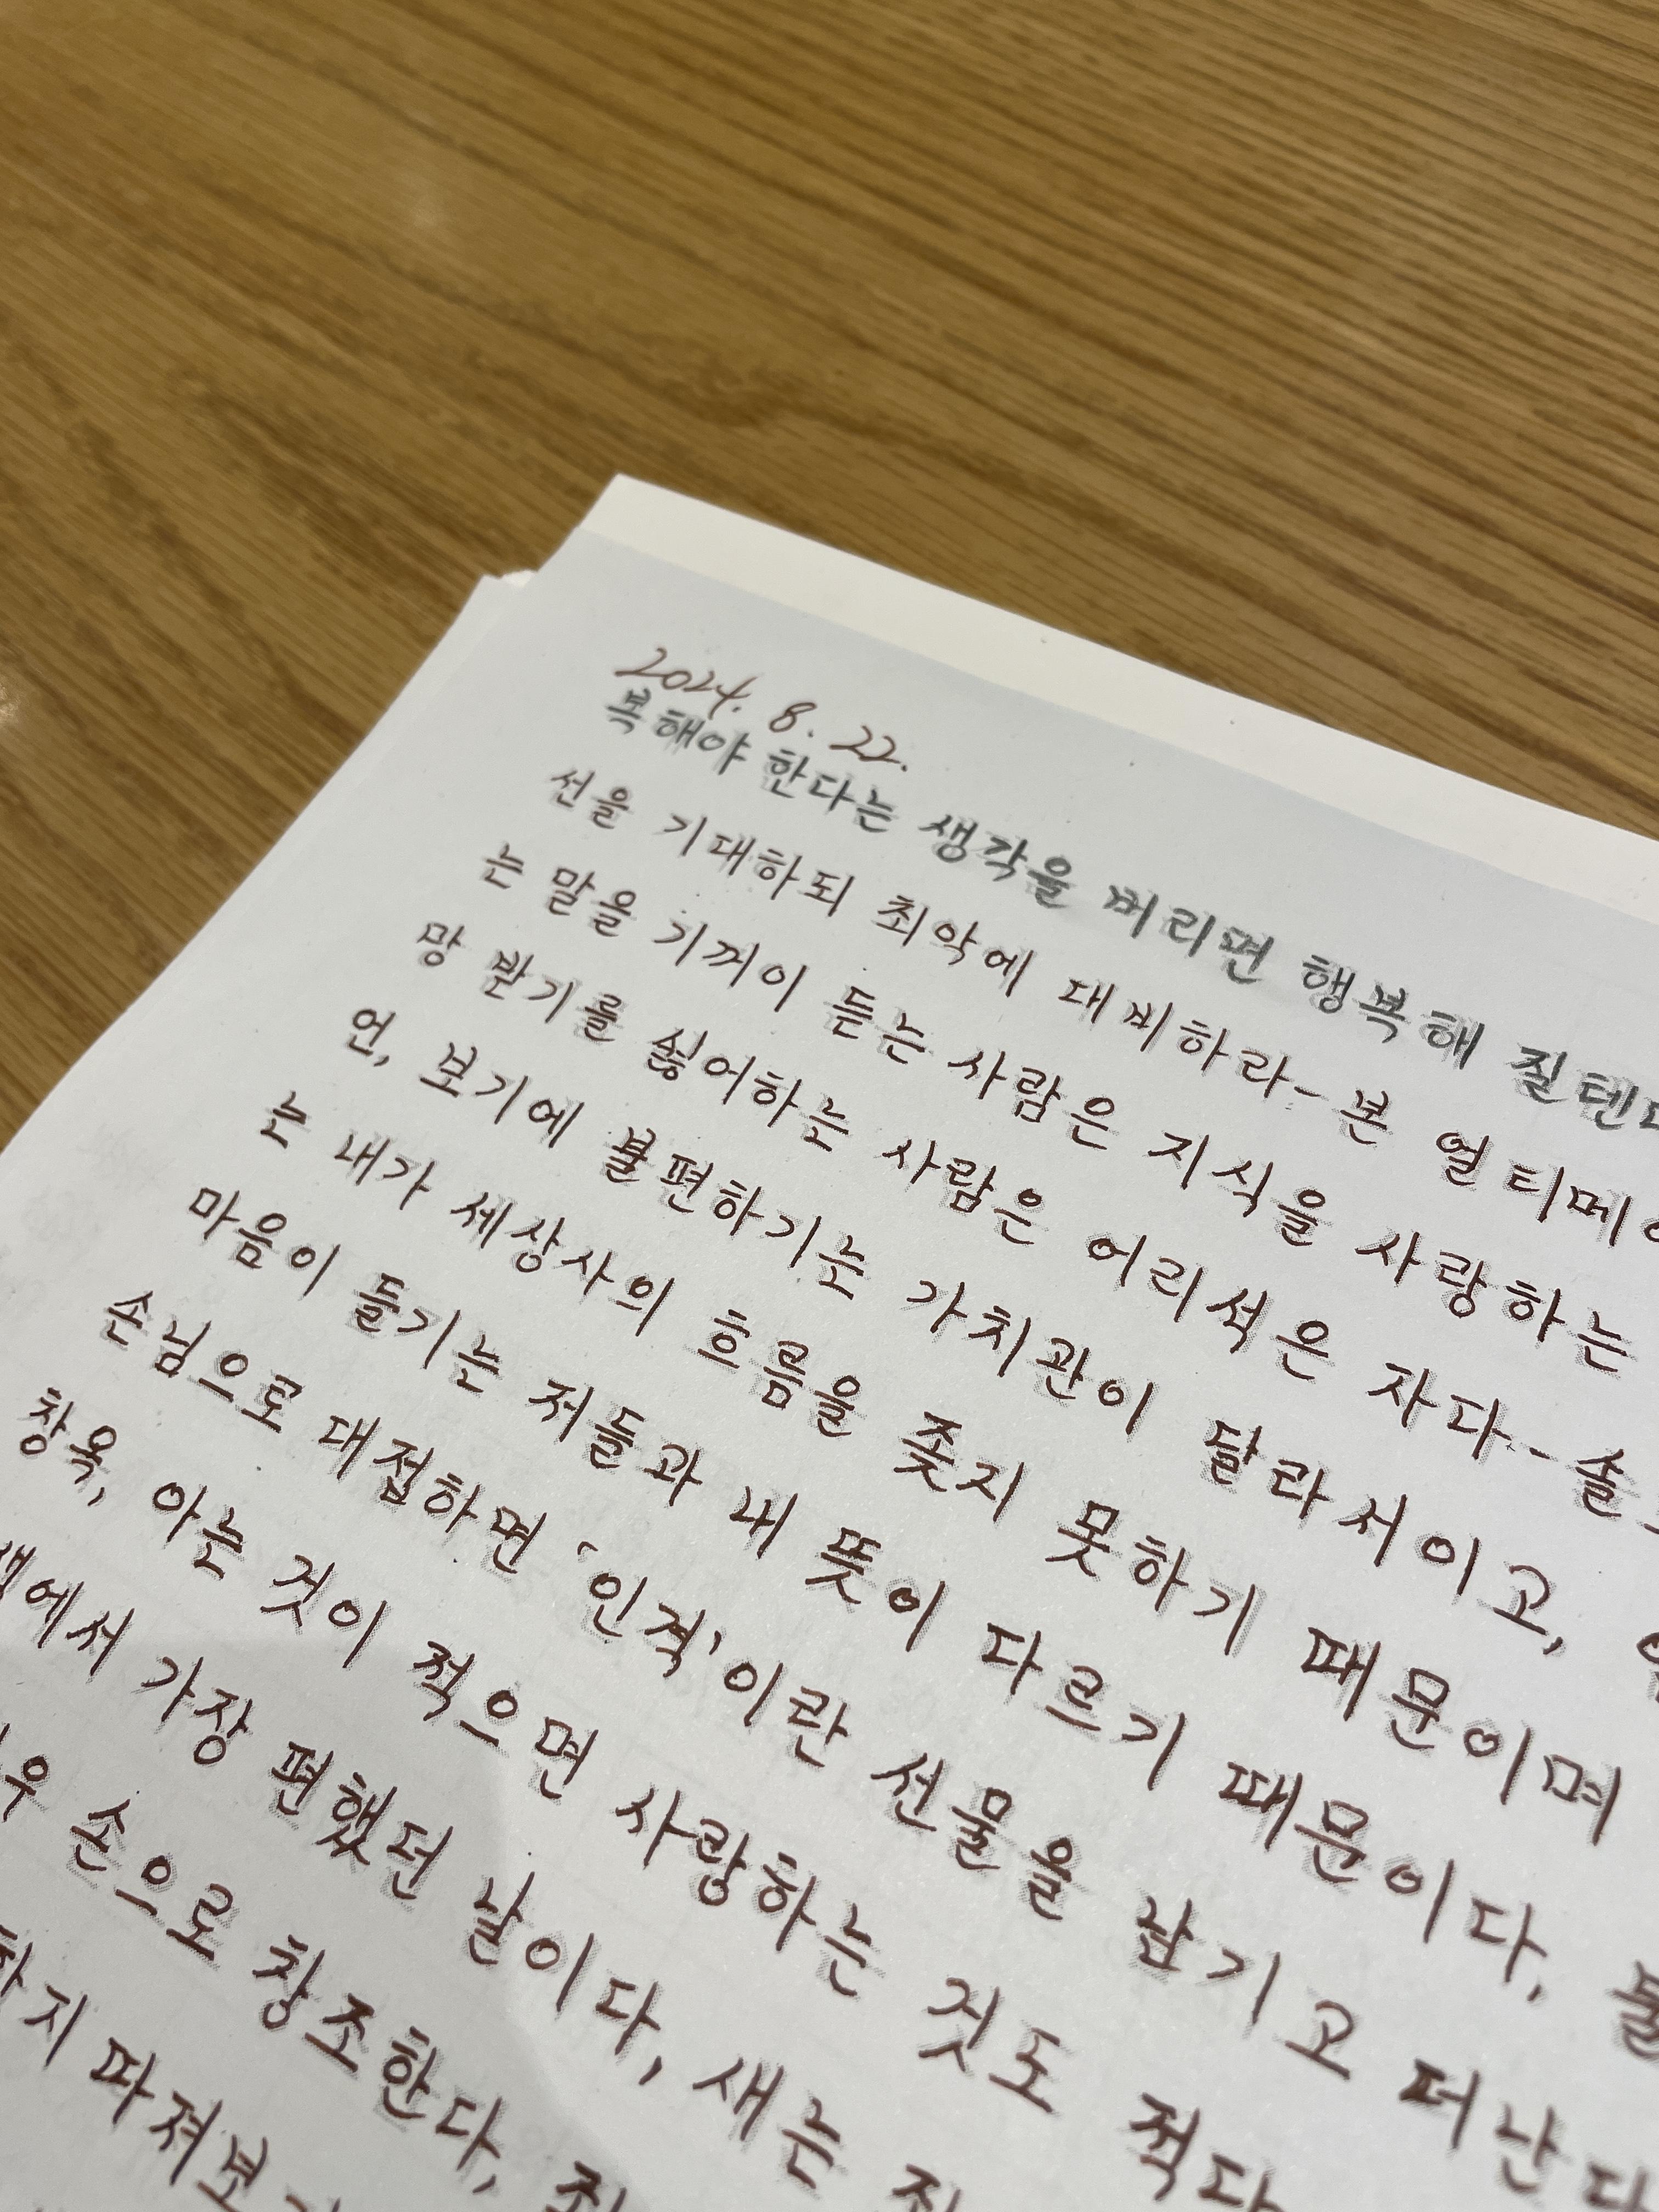 2024. 8. 22.
복해야 한다는 생각을 버리면 행복해 질텐데
선을 기대하되 최악에 대비하라- 본 얼티메이
는 말을 기꺼이 듣는 사람은 지식을 사랑하는
망 받기를 싫어하는 사람은 어리석은 자다--솔
언, 보기에 불편하기는 가치관이 달라서이고,
는 내가 세상사의 흐름을 좇지 못하기 때문이며
마음이 들기는 저들과 내 뜻이 다르기 때문이다,
손님으로 대접하면 '인격'이란 선물을 남기고 떠난다
창욱, 아는 것이 적으면 사랑하는 것도 적다
에서 가장 편했던 날이다, 새는
우 손으로 창조한다,
지 따져보